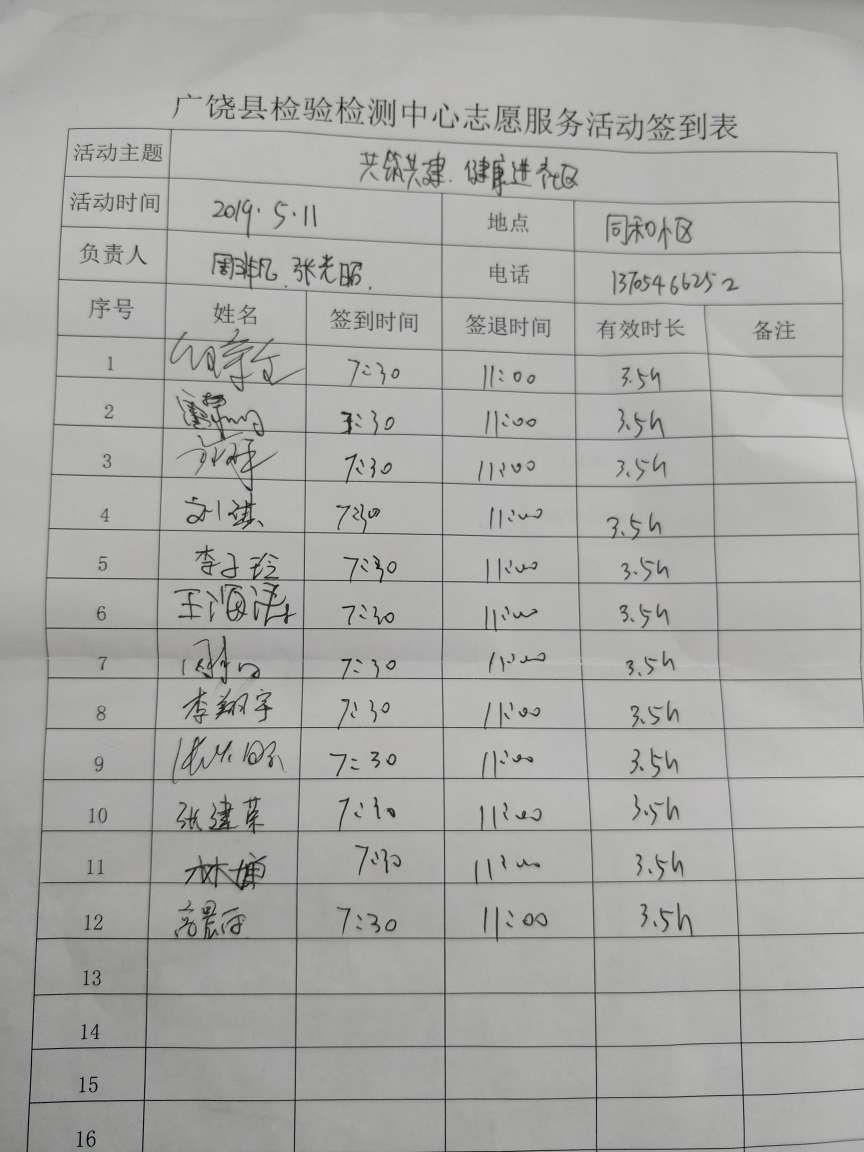 广饶县检验检测中心志愿服务活动签到表
活动主题 共筑共建.健康进社区
活动时间 2019.5.11 地点 同和小区
负责人 周非凡.张光昭. 电话 13705466252
序号 姓名 签到时间 签退时间 有效时长 备注
1 7:30 11:00 3.5h
2 7:30 11:00 3.5h
3 7:30 11:00 3.5h
4 刘琪 7:30 11:00 3.5h
5 李子玲 7:30 11:00 3.5h
6 王海涛 7:30 11:00 3.5h
7 7:30 11:00 3.5h
8 李翔宇 7:30 11:00 3.5h
9 7:30 11:00 3.5h
10 张建荣 7:30 11:00 3.5h
11 7:30 11:00 3.5h
12 7:30 11:00 3.5h
13
14
15
16